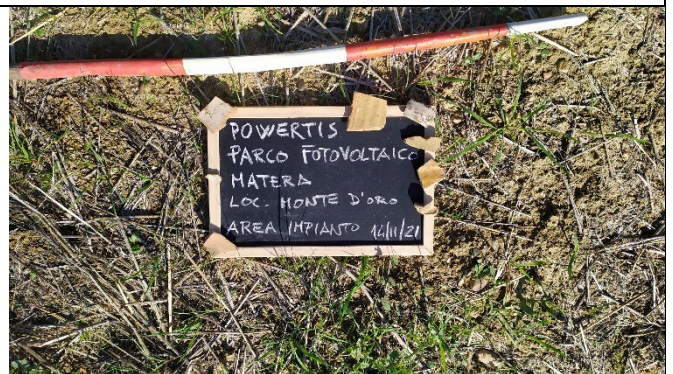 POWERTIS
PARCO FOTOVOLTAICO
MATERA
LOC. MONTE D'ORO
AREA IMPIANTO 14/11/21